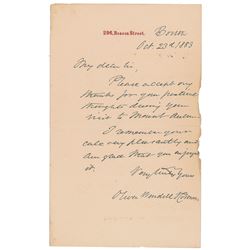 296, Beacon Street.
Boston
Oct. 23rd 1883
My dear Sir,
Please accept my
thanks for your
thoughts during your
visit to Mount Auburn.
I remember your
call very pleasantly and
am glad that you enjoyed
it.
Very truly Yours
Oliver Wendell Holmes